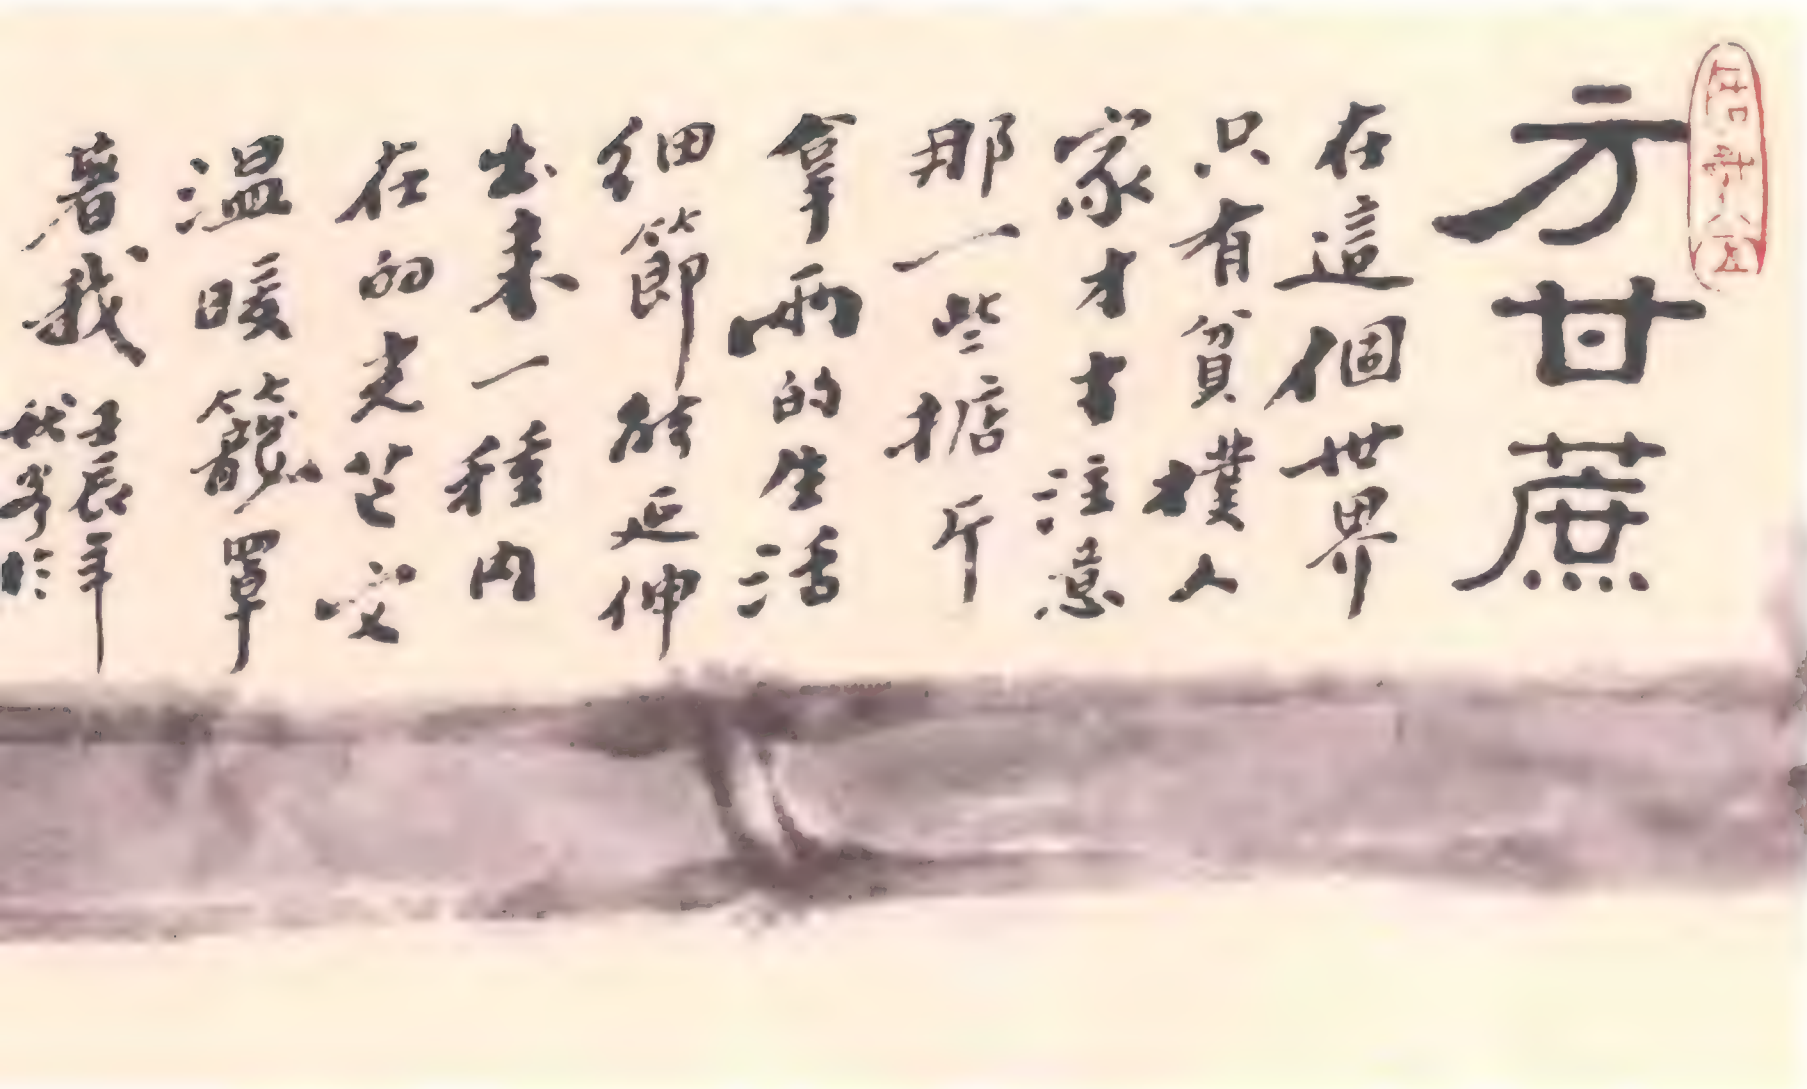 方甘蔗
在這個世界
只有貧樸人
家才才注意
那一些掂斤
拿兩的生活
细節能延伸
出来一種内
在的光芒
温暖籠罩
著我
壬辰年
秋客於